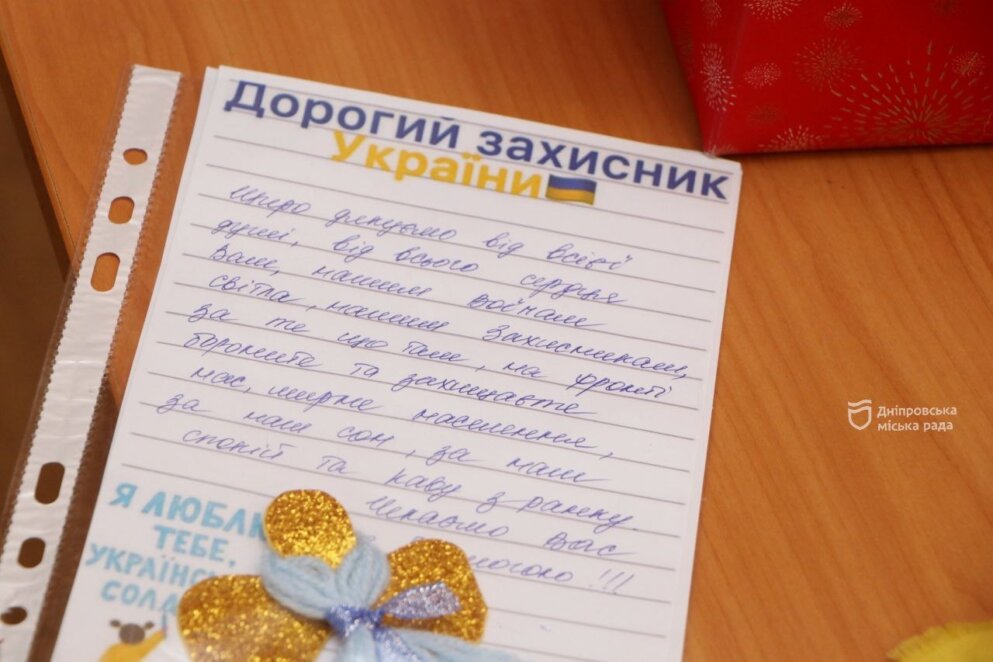 Дорогий захисник
України
Щиро дякуємо від всієї
душі, від всього серця
Вам, нашим воїнам
світла, нашим Захисникам,
за те що там, на фронті
бороните та захищаєте
нас, мирне населення,
за наш сон, за наш
спокій та каву з ранку.
Чекаємо Вас
!!!
Я ЛЮБЛЮ
ТЕБЕ,
Дніпровська
міська рада